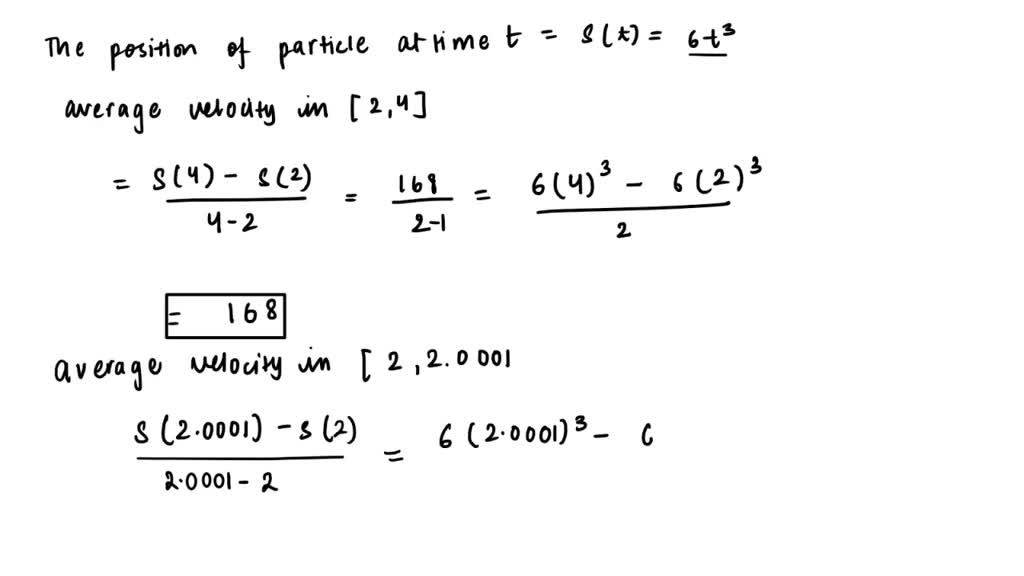 The position of particle at time t = s(t) = 6t³
average velocity in [2,4]
= s(4) - s(2) / 4-2 = 168 / 2-1 = 6(4)³ - 6(2)³ / 2
= 168
average velocity in [2, 2.0001
s(2.0001) - s(2) / 2.0001 - 2 = 6(2.0001)³ - 6